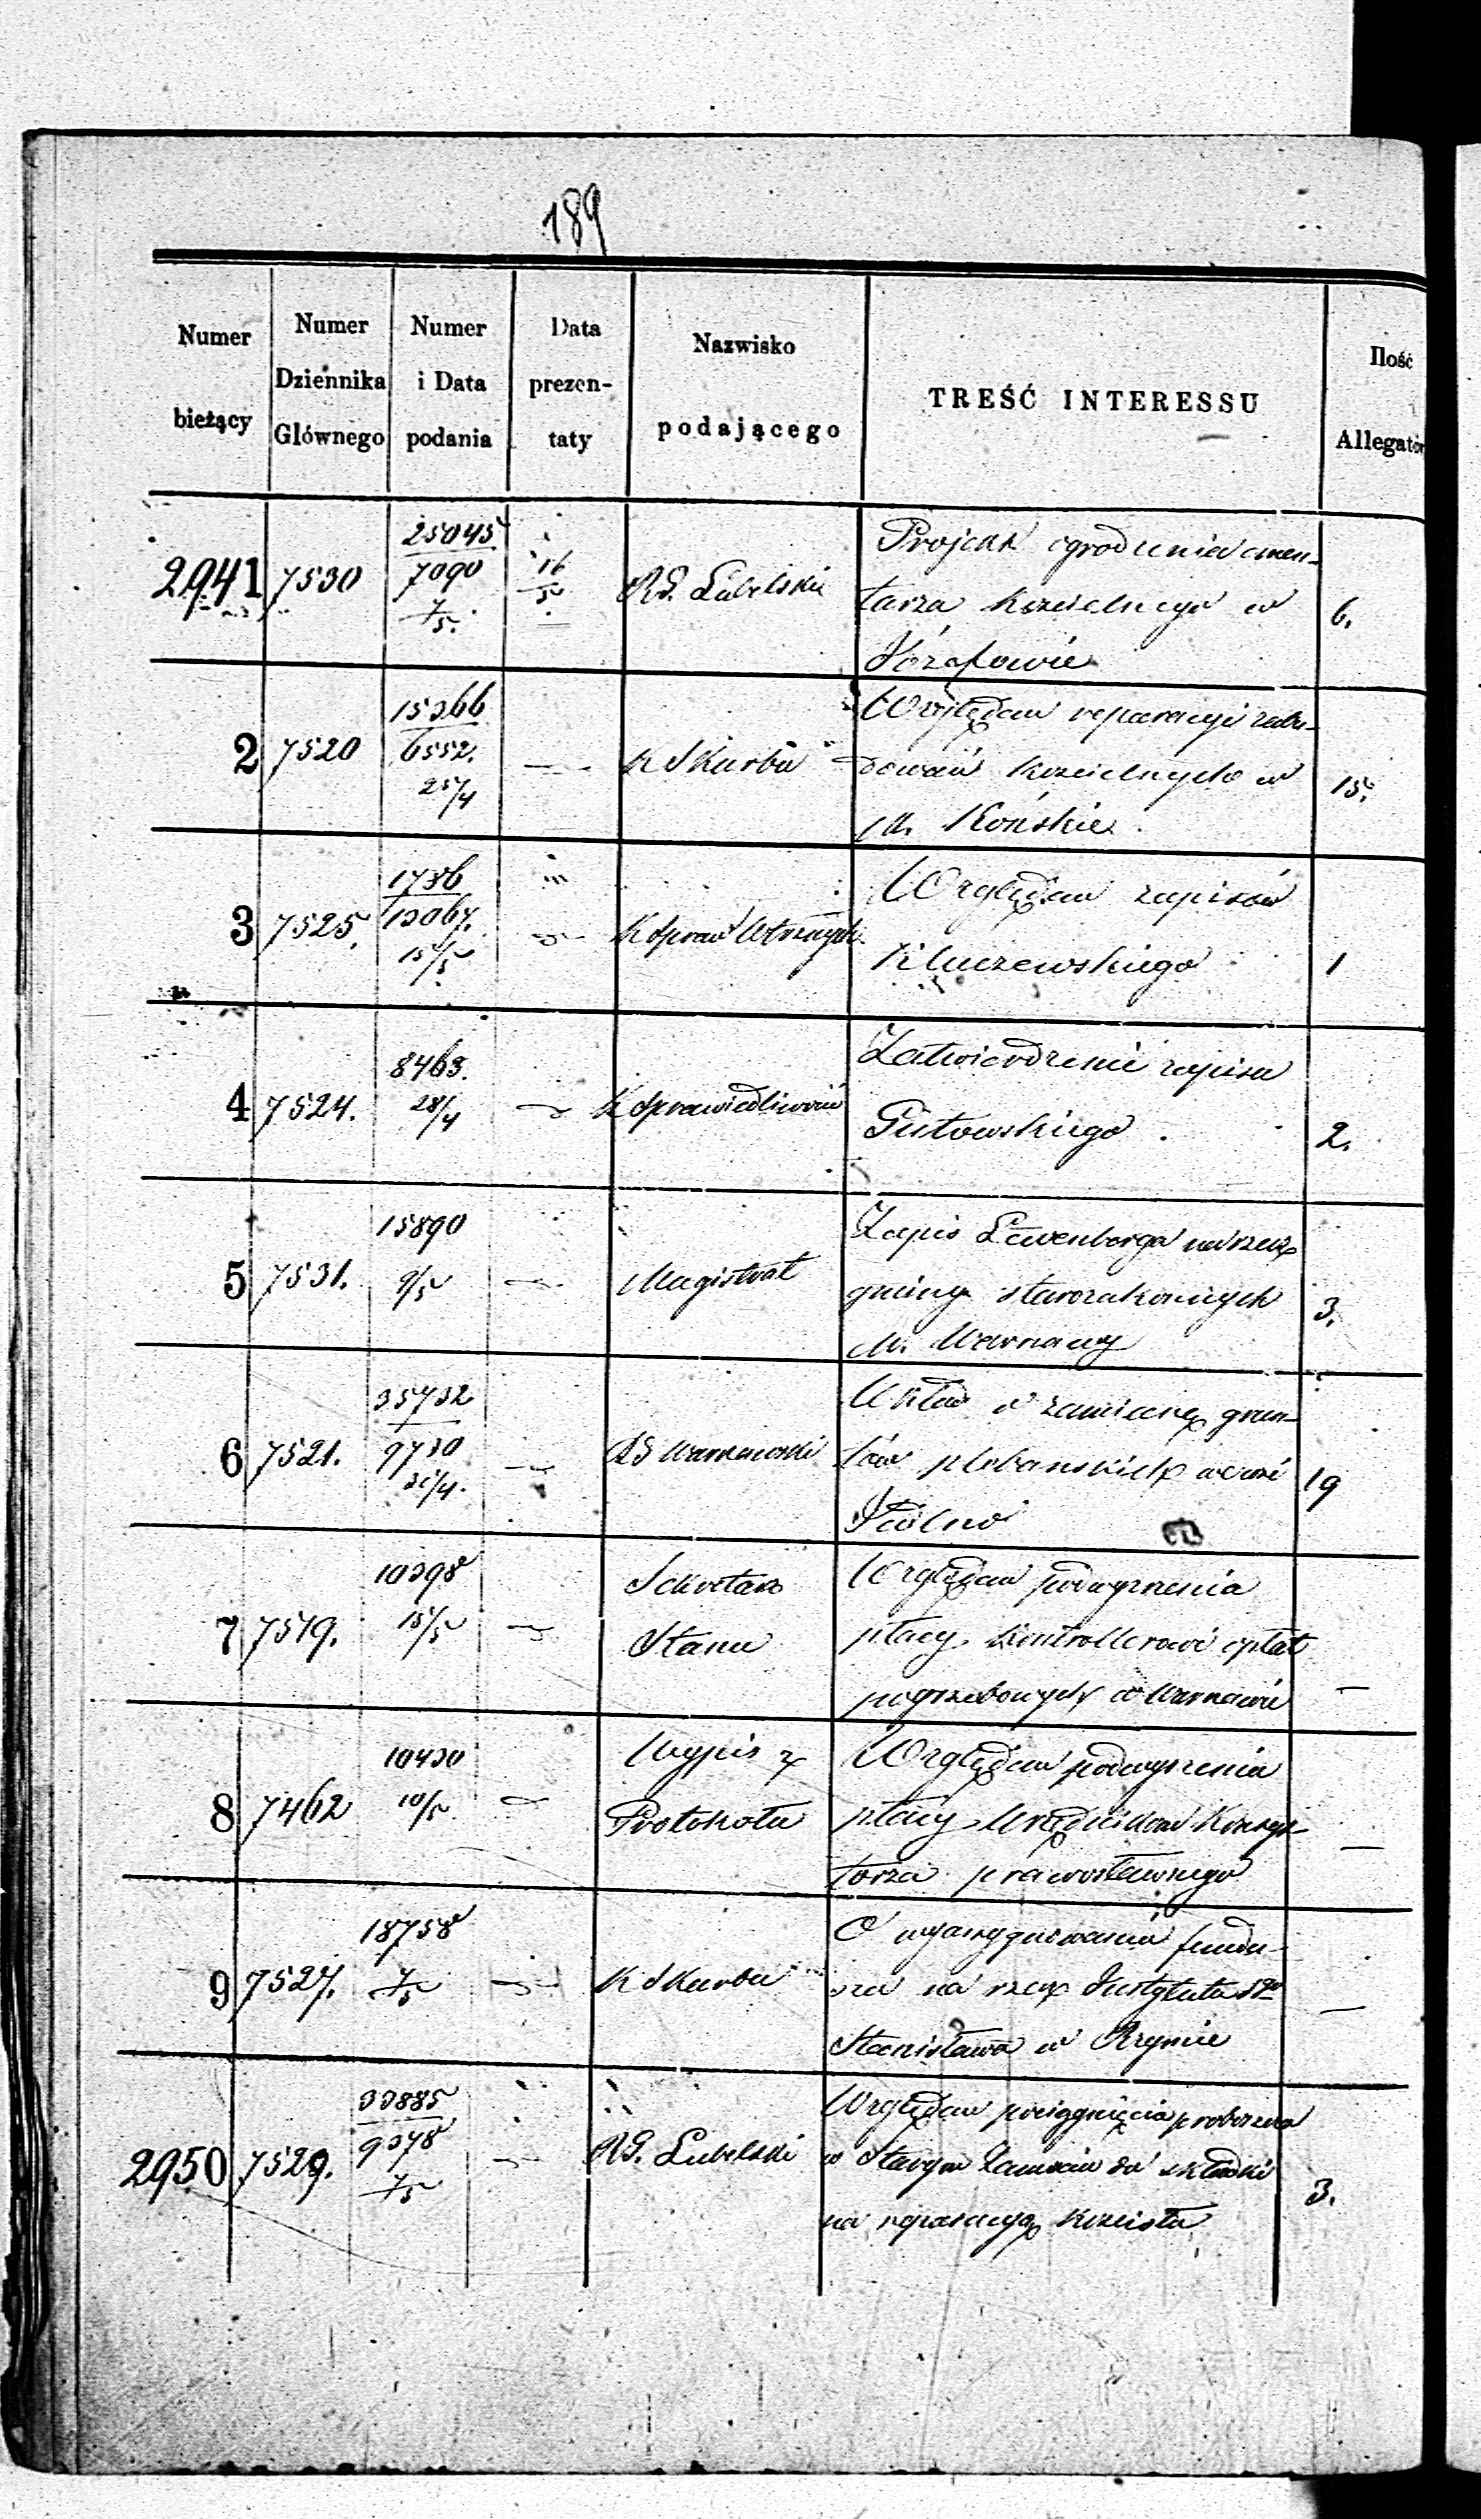 189
Numer bieżący | Numer Dziennika Głównego | Numer i Data podania | Data prezentaty | Nazwisko podającego | TREŚĆ INTERESSU | Ilość Allegatów
2941 | 7530 | 25045 / 7090 7/5. | 16/5 | RG. Lubelski | Projekt ogrodzenia cmen-
tarza kościelnego w | 6.
Józefowie
2 | 7520 | 15366 / 6552. 25/4 | — | K Skarbu | Względem reparacyi zabu-
dowań kościelnych w | 15.
m. Końskie
3 | 7525. | 1736 / 13067. 15/5 | — | K Spraw Wtrznych | Względem zapisów
Kluczewskiego | 1
4 | 7524. | 8463. 28/4 | — | K Sprawiedliwości | Zatwierdzenie zapisu
Gutowskiego | 2.
5 | 7531. | 15890 9/5 | — | Magistrat | Zapis Lewenberga na rzecz
gminy starozakonnych | 3.
M. Warszawy
6 | 7521. | 35732 / 9730 /4. | — | RG Warszawski | Układ o zamianę grun-
tów plebańskich we wsi | 19
7 | 7519. | 10398 15/5 | — | Sekretarz Stanu | Względem podwyższenia
płacy Kontrollerowi opłat
pogrzebowych w Warszawie | —
8 | 7462 | 10430 10/5 | — | Wypis z Protokołu | Względem podwyższenia
płacy Urzędnikom Konsys-
torza prawosławnego | —
9 | 7527. | 18758 7/5 | — | K Skarbu | O wyasygnowanie fundu-
szu na rzecz Instytutu Sgo
Stanisława w Rzymie | —
2950 | 7529. | 33885 / 9378 7/5 | — | RG. Lubelski | Względem pociągnięcia proboszcza
w Starym Zamościu do składki | 3.
na reparacyę kościoła